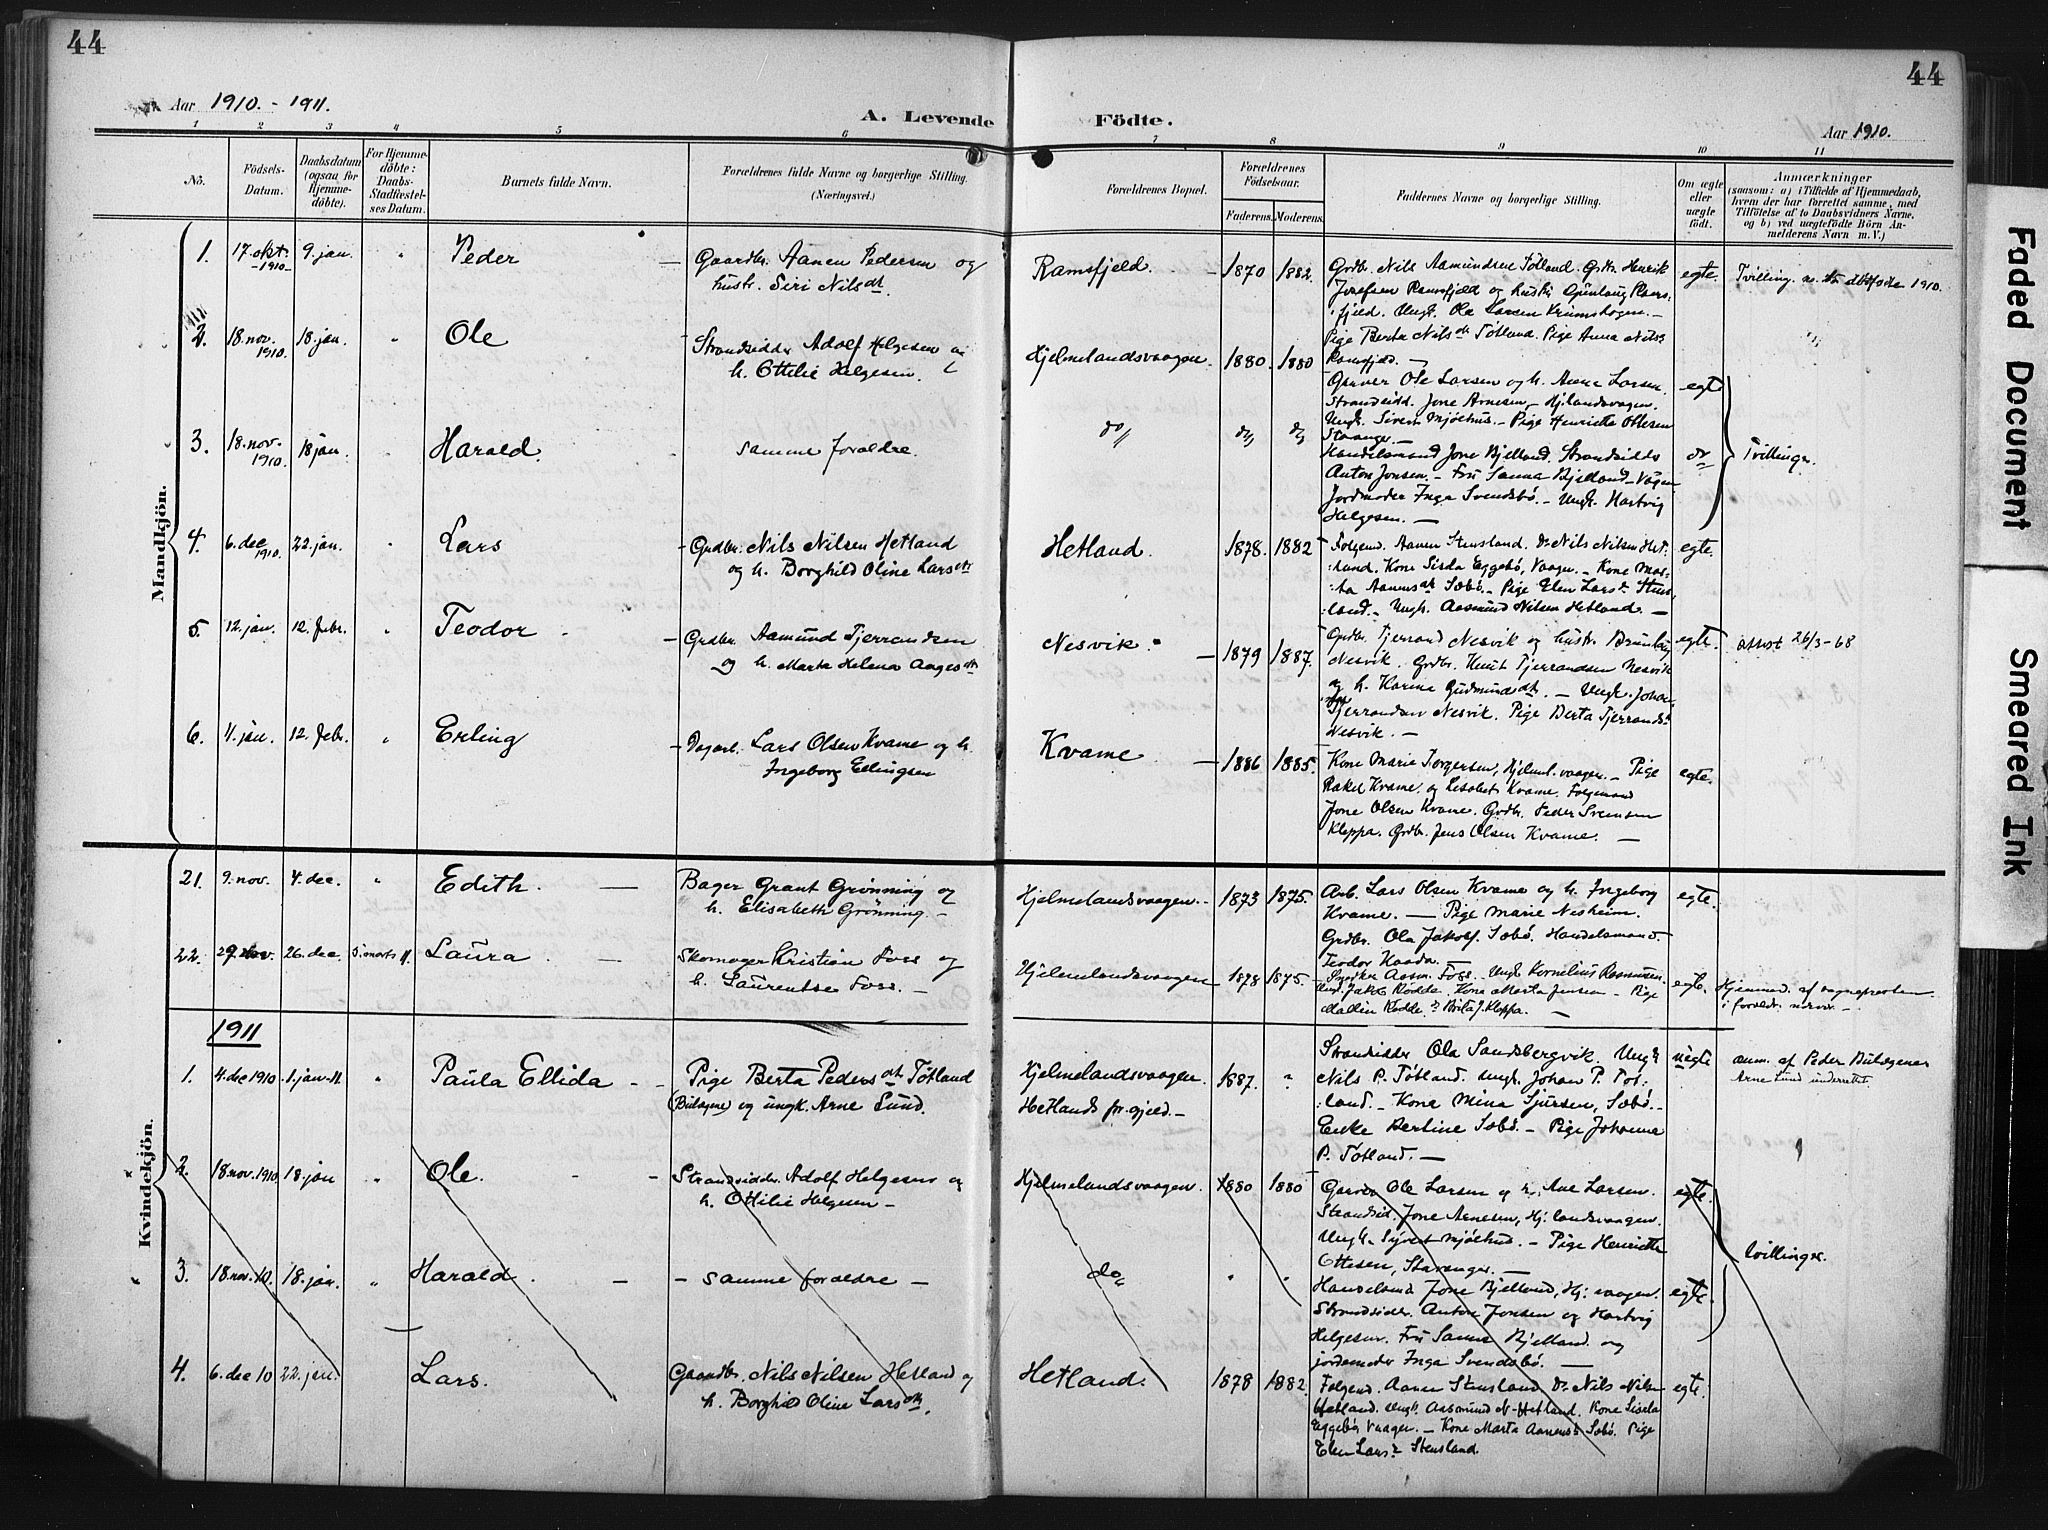 44
44
Aar 1910. - 1911.
A. Levende Födte.
Aar 1910.
1 2 3 4 5 6 7 8 9 10 11
No.
Födsels-
Datum.
Daabsdatum
(ogsaa for
Hjemme-
döbte).
For Hjemme-
döbte:
Daabs-
Stadfæstel-
ses Datum.
Barnets fulde Navn.
Forældrenes fulde Navne og borgerlige Stilling.
(Næringsvei.)
Forældrenes Bopæl.
Forældrenes
Födselsaar.
Faderens. Moderens.
Faddernes Navne og borgerlige Stilling.
Om ægte
eller
uægte
født.
Anmærkninger
(saasom: a) i Tilfælde af Hjemmedaab,
hvem der har forrettet samme, med
Tilföielse af to Daabsvidners Navne,
og b) ved uægtefödte Börn An-
melderens Navn m. V.)
Mandkjön.
1. 17. okt. -1910- 9. jan. " Peder
Gaardbr. Aanen Pedersen og
hustr. Siri Nilsdt.
Ramsfjeld. 1870 1882.
Grdbr. Nils Aamundsen Tøtland. Grdbr. Henrik
Josefsen Ramsfjeld og hustr. Gunlaug Rams-
fjeld. Ungk. Ola Larsen Krumshagen. -
Pige Berta Nilsdt. Tøtland. Pige Anna Nilsd
Ramsfjeld. -
egte. Tvilling m. dødføde 1910.
2. 18. nov. 1910. 18. jan. " Ole
Strandsidder Adolf Helgesen og
h. Ottilie Helgesen.
Hjelmelandsvaagen. 1880. 1880
Garver Ole Larsen og h. Anne Larsen.
Strandsidd. Jone Arnesen, - Hj.landsvaagen.
Ungk. Sivert Mjølhus. - Pige Henriette Ottesen
Stavanger. -
egte
3. 18. nov. 1910. 18 jan. " Harald.
samme forældre.
do
Handelsmand Jone Bjelland. Strandsidd.
Anton Jonsen. - Fru Sanna Bjelland - Vågen
Jordmoder Inga Svendsbø. - Ungk. Hartvig
Helgesen. -
do Tvillinger.
4. 6. dec 1910. 22. jan. " Lars
Grdbr. Nils Nilsen Hetland
og h. Borghild Oline Larsdtr
Hetland. 1878. 1882
Folgemd. Aanen Stensland. Do Nils Nilsen Het-
land. Kone Sisela Eggebø, Vaagen. - Kone Mar-
ta Aanensdt. Sæbø. - Pige Elen Larsdt. Stens-
land. - Ungk. Aasmund Nilsen Hetland. -
egte.
5. 12. jan. 12. febr. " Teodor
Grdbr. Aamund Tjerrandsen
og h. Marta Helena Aagesdt
Nesvik. 1879 1887.
Grdbr. Tjerrand Nesvik og hustr. Brunlaug
Nesvik. Grdbr. Knut Tjerrandsen Nesvik
og h. Karina Gudmundsdt. - Ungk. Johan-
Tjerrandsen Nesvik. Pige Berta Tjerrandsd
Nesvik. -
egte. attest 26/3-68
6. 11. jan. 12. febr. " Erling
Dagarb. Lars Olsen Kvame og h.
Ingeborg Erlingsen
Kvame 1886 1885.
Kone Marie Torgersen, Hjelml.vaagen. - Pige
Rakel Kvame. og Lisabet Kvame. Folgemand
Jone Olsen Kvame. Grdbr. Peder Svensen
Kleppa. Grdbr. Jens Olsen Kvame. -
egte.
Kvindekjön.
21. 9. nov. 4. dec. " Edith.
Bager Grant Grønning og
h. Elisabeth Grønning. -
Hjelmelandsvaagen. - 1873 1875.
Arb. Lars Olsen Kvame og h. Ingeborg
Kvame. - Pige Marie Nesheim.
Grdbr. Ola Jakobs. Sæbø. Handelsmand.
Teodor Haada.
egte.
22. 29. nov. 26. dec. 5. marts 11. Laura
Skomager Kristian Foss og
h. Laurentse Foss. -
Hjelmelandsvaagen 1878 1875.
Snedker Aasm. Foss. Ungk. Kornelius Rasmussen.
Ungk. Jakob Rødde. Kone Marta Jensen. - Pige
Mallin Rødde. Do Brita J. Kleppa. -
egte. Hjemmed. af sognepresten
i foræld. nærvær. -
1911
1. 4. dec 1910. 1. jan. 11. " Paula Ellida
Pige Berta Pedersdt. Tøtland
(Buløyne) og ungk. Arne Lund.
Hjelmelandsvaagen. 1887. "
Hetlands pr.gjeld. -
Strandsidder Ola Sandsbergvik. Ungk
Nils P. Tøtland. Ungk. Johan P. Tøt-
land. - Kone Mina Sjursen, Sæbø. -
Enke Bertine Sæbø. - Pige Johanne
P. Tøtland. -
uegte anm. af Peder Buløynes
Arne Lund underrettet.
2. 18 nov. 1910 18. jan " Ole.
Strandsidder. Adolf Helgesen og
h. Ottilie Helgesen -
Hjelmelandsvaagen. 1880 1880
Garver Ole Larsen og h. Ane Larsen.
Strandsid. Jone Arnesen, Hj.landsvaagen.
Ungk. Syvert Mjølhus. - Pige Henriette
Ottesen, Stavanger. -
egte.
3. 18. nov. 10. 18. jan. " Harald.
- samme forældre -
do " "
Handelsmd Jone Bjelland, Hj. vaagen.
Strandsidder. Anton Jonsen og Hartvig
Helgesen. Fru Sanna Bjelland og
jordemoder Inga Svendsbø. -
egte. tvillinger.
4. 6. dec 10 22. jan. Lars.
Gaardbr. Nils Nilsen Hetland og
h. Borghild Oline Larsdtr.
Hetland. 1878 1882.
Folgemd. Aanen Stensland, Do Nils Nilsen
Hetland. Ungk. Aasmund N. Hetland. Kone Sisela
Eggebø Vaagen. - Kone Marta Aanensd Sæbø. Pige
Elen Larsd Stensland.
egte.
Faded Document
Smeared Ink